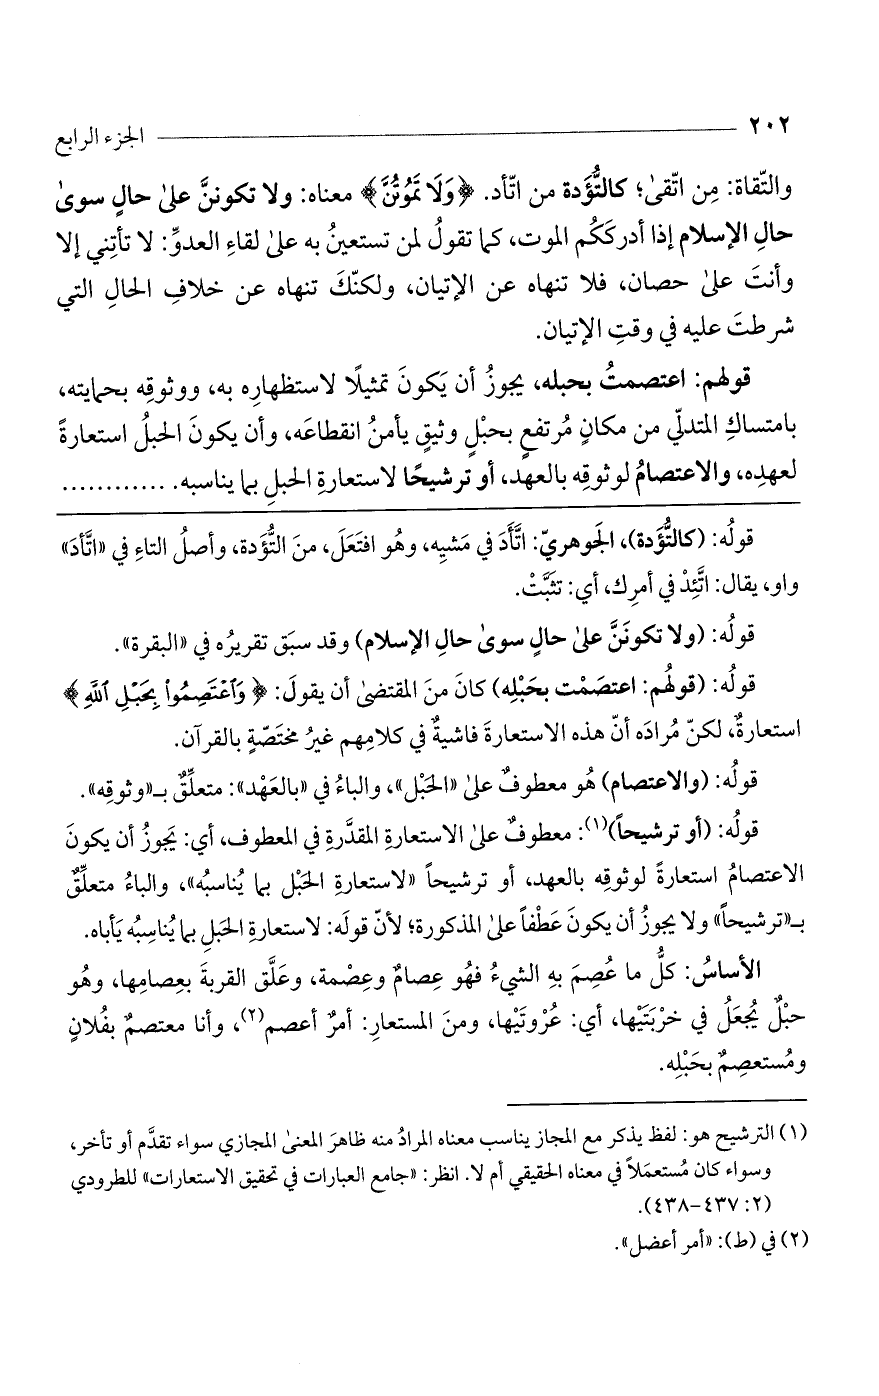 ٢٠٢ الجزء الرابع
والتّقاة: مِن اتّقىٰ؛ كالتُّؤَدة من اتّأد. ﴿وَلَا تَمُوتُنَّ﴾ معناه: ولا تكوننَّ علىٰ حالٍ سوىٰ
حالِ الإسلام إذا أدركَكُم الموت، كما تقولُ لمن تستعينُ به علىٰ لقاءِ العدوِّ: لا تأتِني إلا
وأنتَ علىٰ حصان، فلا تنهاه عن الإتيان، ولكنّكَ تنهاه عن خلافِ الحالِ التي
شرطتَ عليه في وقتِ الإتيان.
قولهم: اعتصمتُ بحبله، يجوزُ أن يَكونَ تمثيلًا لاستظهارِه به، ووثوقِه بحمايته،
بامتساكِ المتدلّي من مكانٍ مُرتفعٍ بحبْلٍ وثيقٍ يأمنُ انقطاعَه، وأن يكونَ الحبلُ استعارةً
لعهدِه، والاعتصامُ لوثوقِه بالعهد، أو ترشيحًا لاستعارةِ الحبلِ بما يناسبه. ............
قولُه: (كالتُّؤَدة)، الجَوهريّ: اتَّأَدَ في مَشيِه، وهُو افتَعَلَ، منَ التُّؤَدة، وأصلُ التاءِ في «اتَّأدَ»
واو، يقال: اتَّئِدْ في أمرِك، أي: تثَبَّتْ.
قولُه: (ولا تكونَنَّ علىٰ حالٍ سوىٰ حالِ الإسلام) وقد سبَق تقريرُه في «البقرة».
قولُه: (قولُهم: اعتصَمْت بحَبْلِه) كانَ منَ المقتضىٰ أن يقولَ: ﴿وَٱعْتَصِمُوا۟ بِحَبْلِ ٱللَّهِ﴾
استعارةٌ، لكنّ مُرادَه أنّ هذه الاستعارةَ فاشيةٌ في كلامِهم غيرُ مختَصّةٍ بالقرآن.
قولُه: (والاعتصام) هُو معطوفٌ علىٰ «الحَبْل»، والباءُ في «بالعَهْد»: متعلِّقٌ بـ«وثوقِه».
قولُه: (أو ترشيحاً)(١): معطوفٌ علىٰ الاستعارةِ المقدَّرةِ في المعطوف، أي: يَجوزُ أن يكونَ
الاعتصامُ استعارةً لوثوقِه بالعهد، أو ترشيحاً «لاستعارةِ الحَبْل بما يُناسبُه»، والباءُ متعلّقٌ
بـ«ترشيحاً» ولا يجوزُ أن يكونَ عَطْفاً علىٰ المذكورة؛ لأنّ قولَه: لاستعارةِ الحَبلِ بما يُناسِبُه يَأباه.
الأساسُ: كلُّ ما عُصِمَ بهِ الشيءُ فهُو عِصامٌ وعِصْمة، وعَلَّق القربةَ بعِصامِها، وهُو
حبْلٌ يُجعَلُ في خرْبَتَيْها، أي: عُرْوتَيْها، ومنَ المستعارِ: أمرٌ أعصم(٢)، وأنا معتصمٌ بفُلانٍ
ومُستعصِمٌ بحَبْلِه.
(١) الترشيح هو: لفظ يذكر مع المجاز يناسب معناه المرادُ منه ظاهرَ المعنىٰ المجازي سواء تقدَّم أو تأخر،
وسواء كان مُستعمَلاً في معناه الحقيقي أم لا. انظر: «جامع العبارات في تحقيق الاستعارات» للطرودي
(٢: ٤٣٧-٤٣٨).
(٢) في (ط): «أمر أعضل».